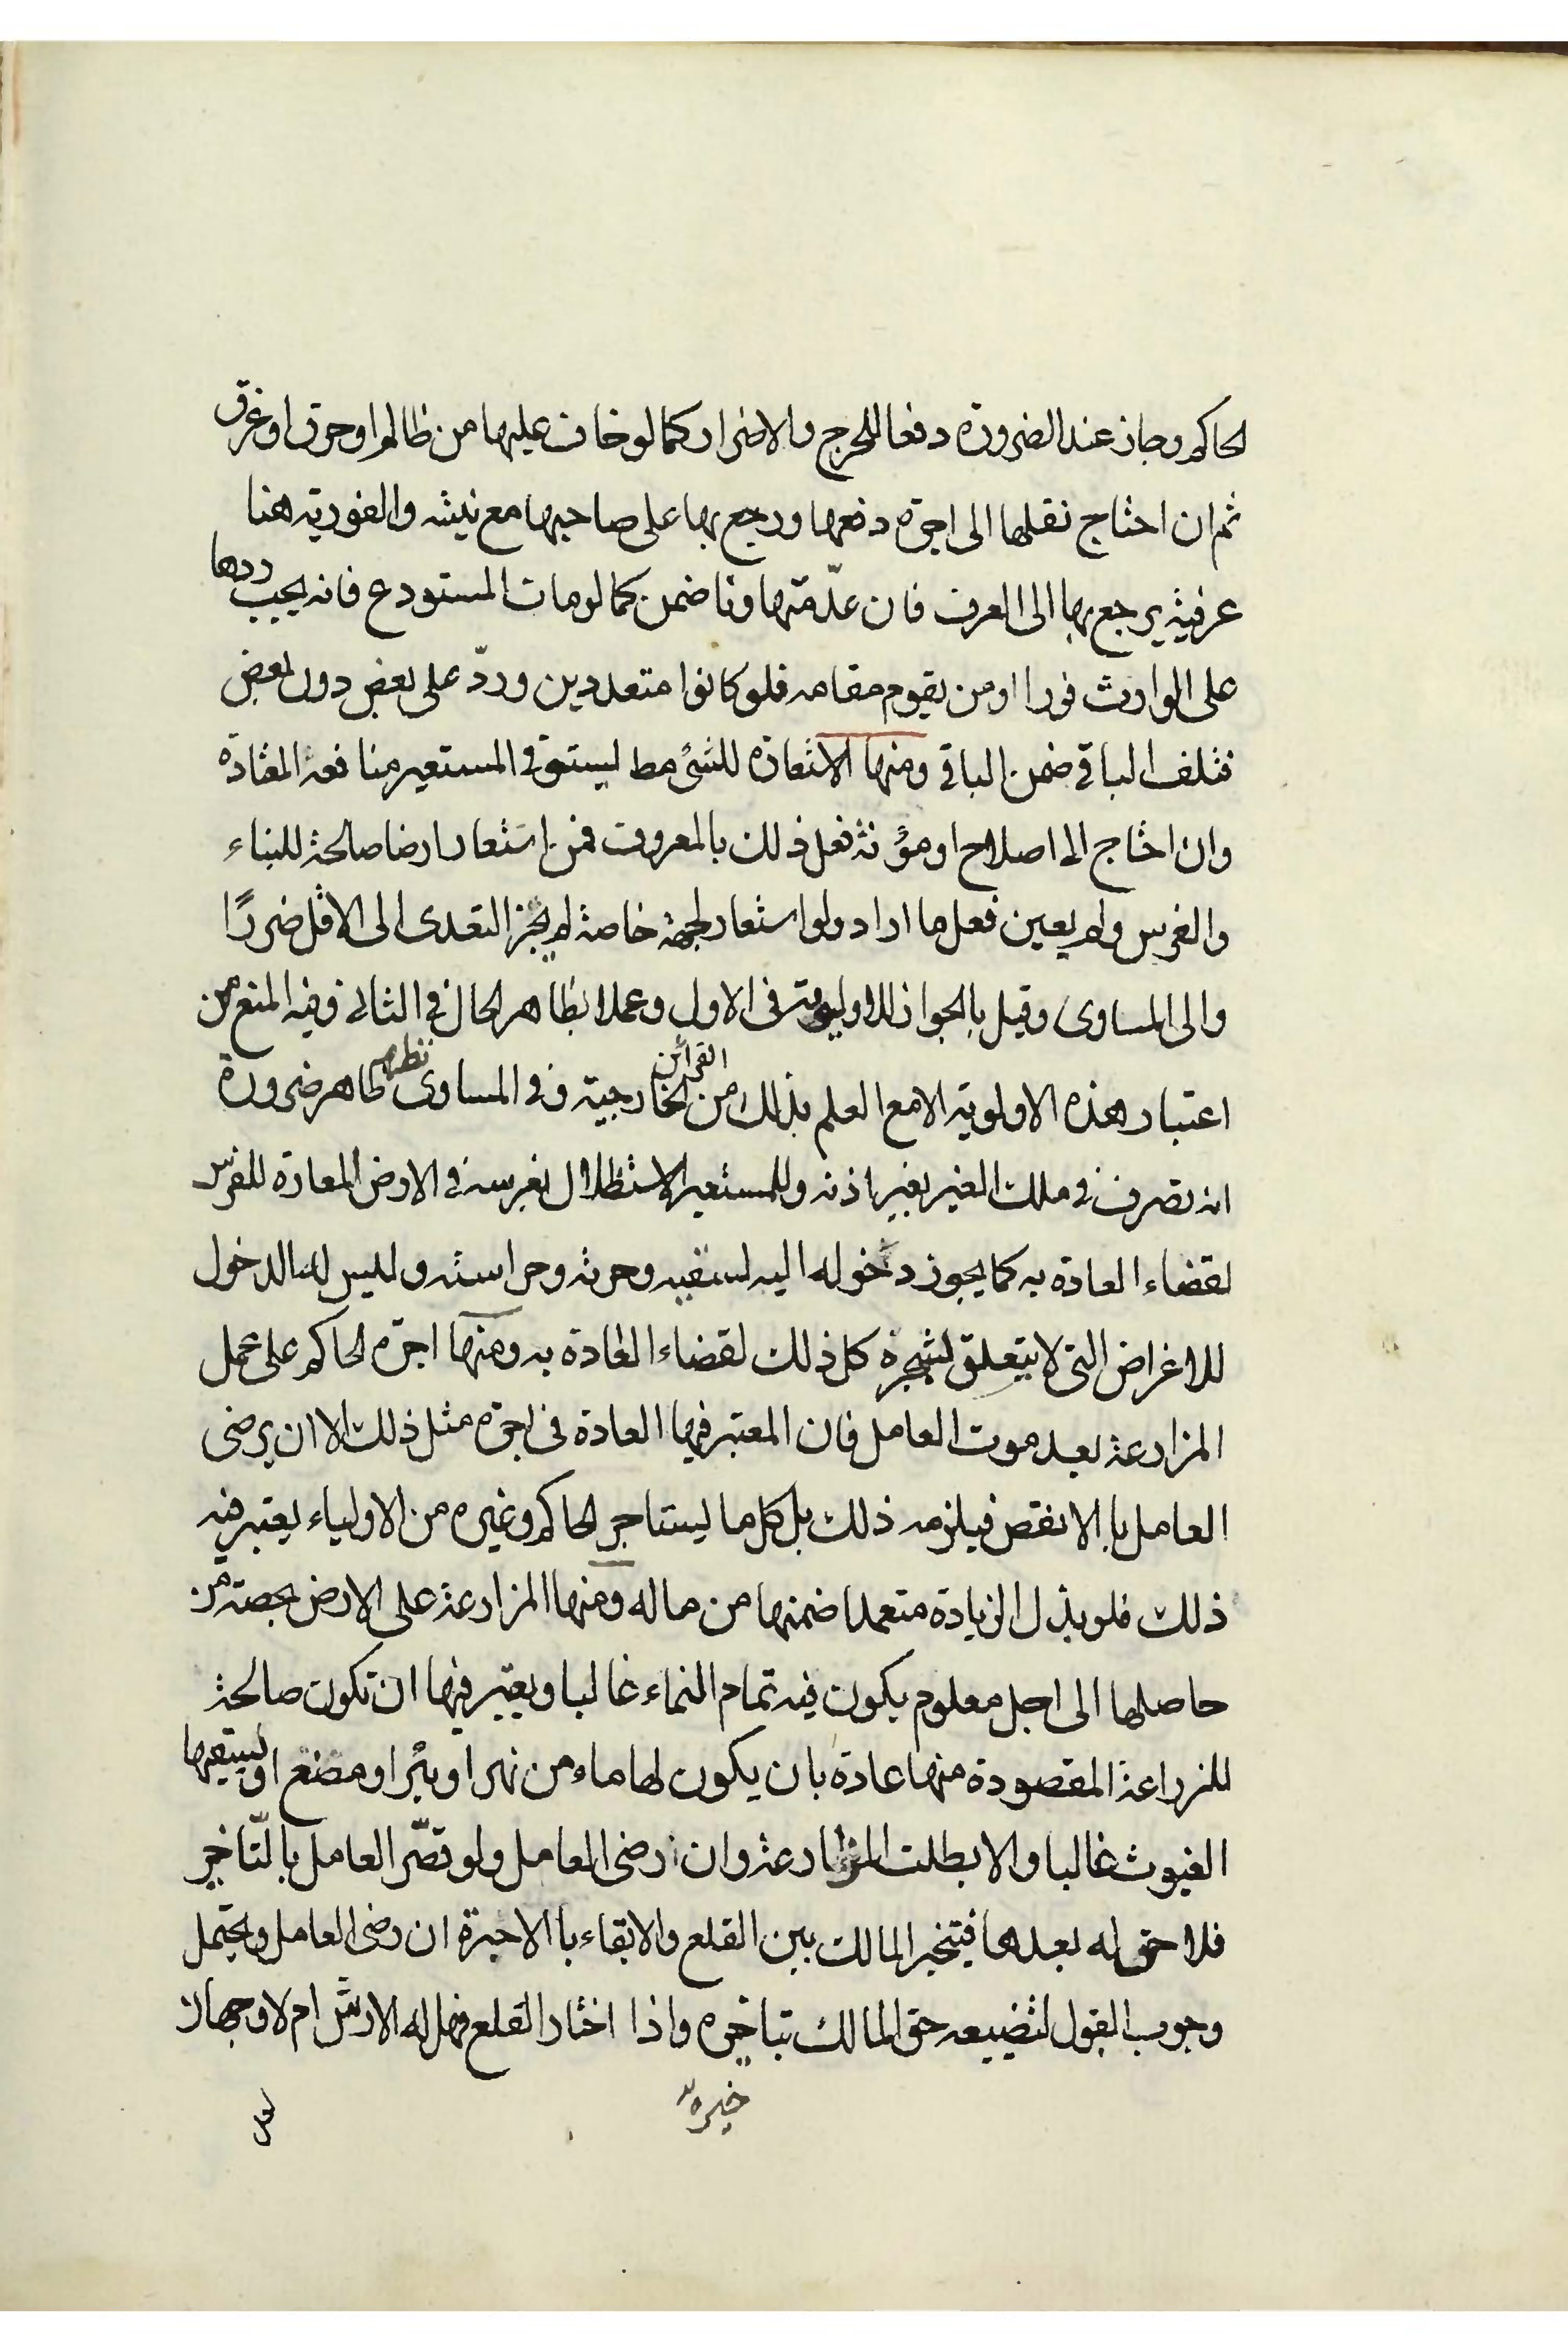 الحاكم وجاز عند الضرورة دفعا للحرج والاضرار كما لو خاف عليها من ظالم او حرق او غرق
ثم ان احتاج نقلها الى اجرة دفعها ورجع بها على صاحبها مع نيته والفورية هنا
عرفية يرجع بها الى العرف فان عدّمتها ونا ضمن كما لو مات المستودع فانه يجب ردها
على الوارث فورا او من يقوم مقامه فلو كانوا متعددين وردّ على بعض دون بعض
فتلف الباقي ضمن الباقي ومنها الاستعارة للشئ مط ليستوفي المستعير منافعه المعتادة
وان احتاج الى اصلاح او مؤنة فعل ذلك بالمعروف فمن استعار ارضا صالحة للبناء
والغرس ولم يعين فعل ما اراد ولو استعار لجهة خاصة لم يجز التعدى الى الاقل ضررًا
والى المساوى وقيل بالجواز للاولوية في الاول وعملا بظاهر الحال في الثاني وفيه المنع من
اعتبار هذه الاولوية الا مع العلم بذلك من القرائن الخارجية وفي المساوى نظر ظاهر ضرورة
انه تصرف في ملك الغير بغير اذنه وللمستعير الاستظلال بغرسه في الارض المعارة للغرس
لقضاء العادة به كما يجوز دخوله اليه لسقيه وحرثه وحراسته وليس له الدخول
للاغراض التى لا يتعلق لشجرة كل ذلك لقضاء العادة به ومنها اجرة الحاكم على عمل
المزارعة بعد موت العامل فان المعتبر فيها العادة في اجرة مثل ذلك الا ان يرضى
العامل با الانقص فيلزمه ذلك بل كل ما يستاجر الحاكم وغيره من الاولياء يعتبر فيه
ذلك فلو بذل الزيادة متعمدا ضمنها من ماله ومنها المزارعة على الارض بحصة من
حاصلها الى اجل معلوم يكون فيه تمام النماء غالبا ويعتبر فيها ان تكون صالحة
للزراعة المقصودة منها عادة بان يكون لها ماء من نهر او بئر او مصنع او يسقيها
الغيوث غالبا والا بطلت المزارعة وان رضى العامل ولو قصّر العامل بالتّاخير
فلا حق له بعدها فيتخير المالك بين القلع والابقاء با الاجرة ان رضى العامل ويحتمل
وجوب القبول لتضييعه حق المالك بتاخيره واذا اختار القلع فهل له الارش ام لا وجهان
خيره